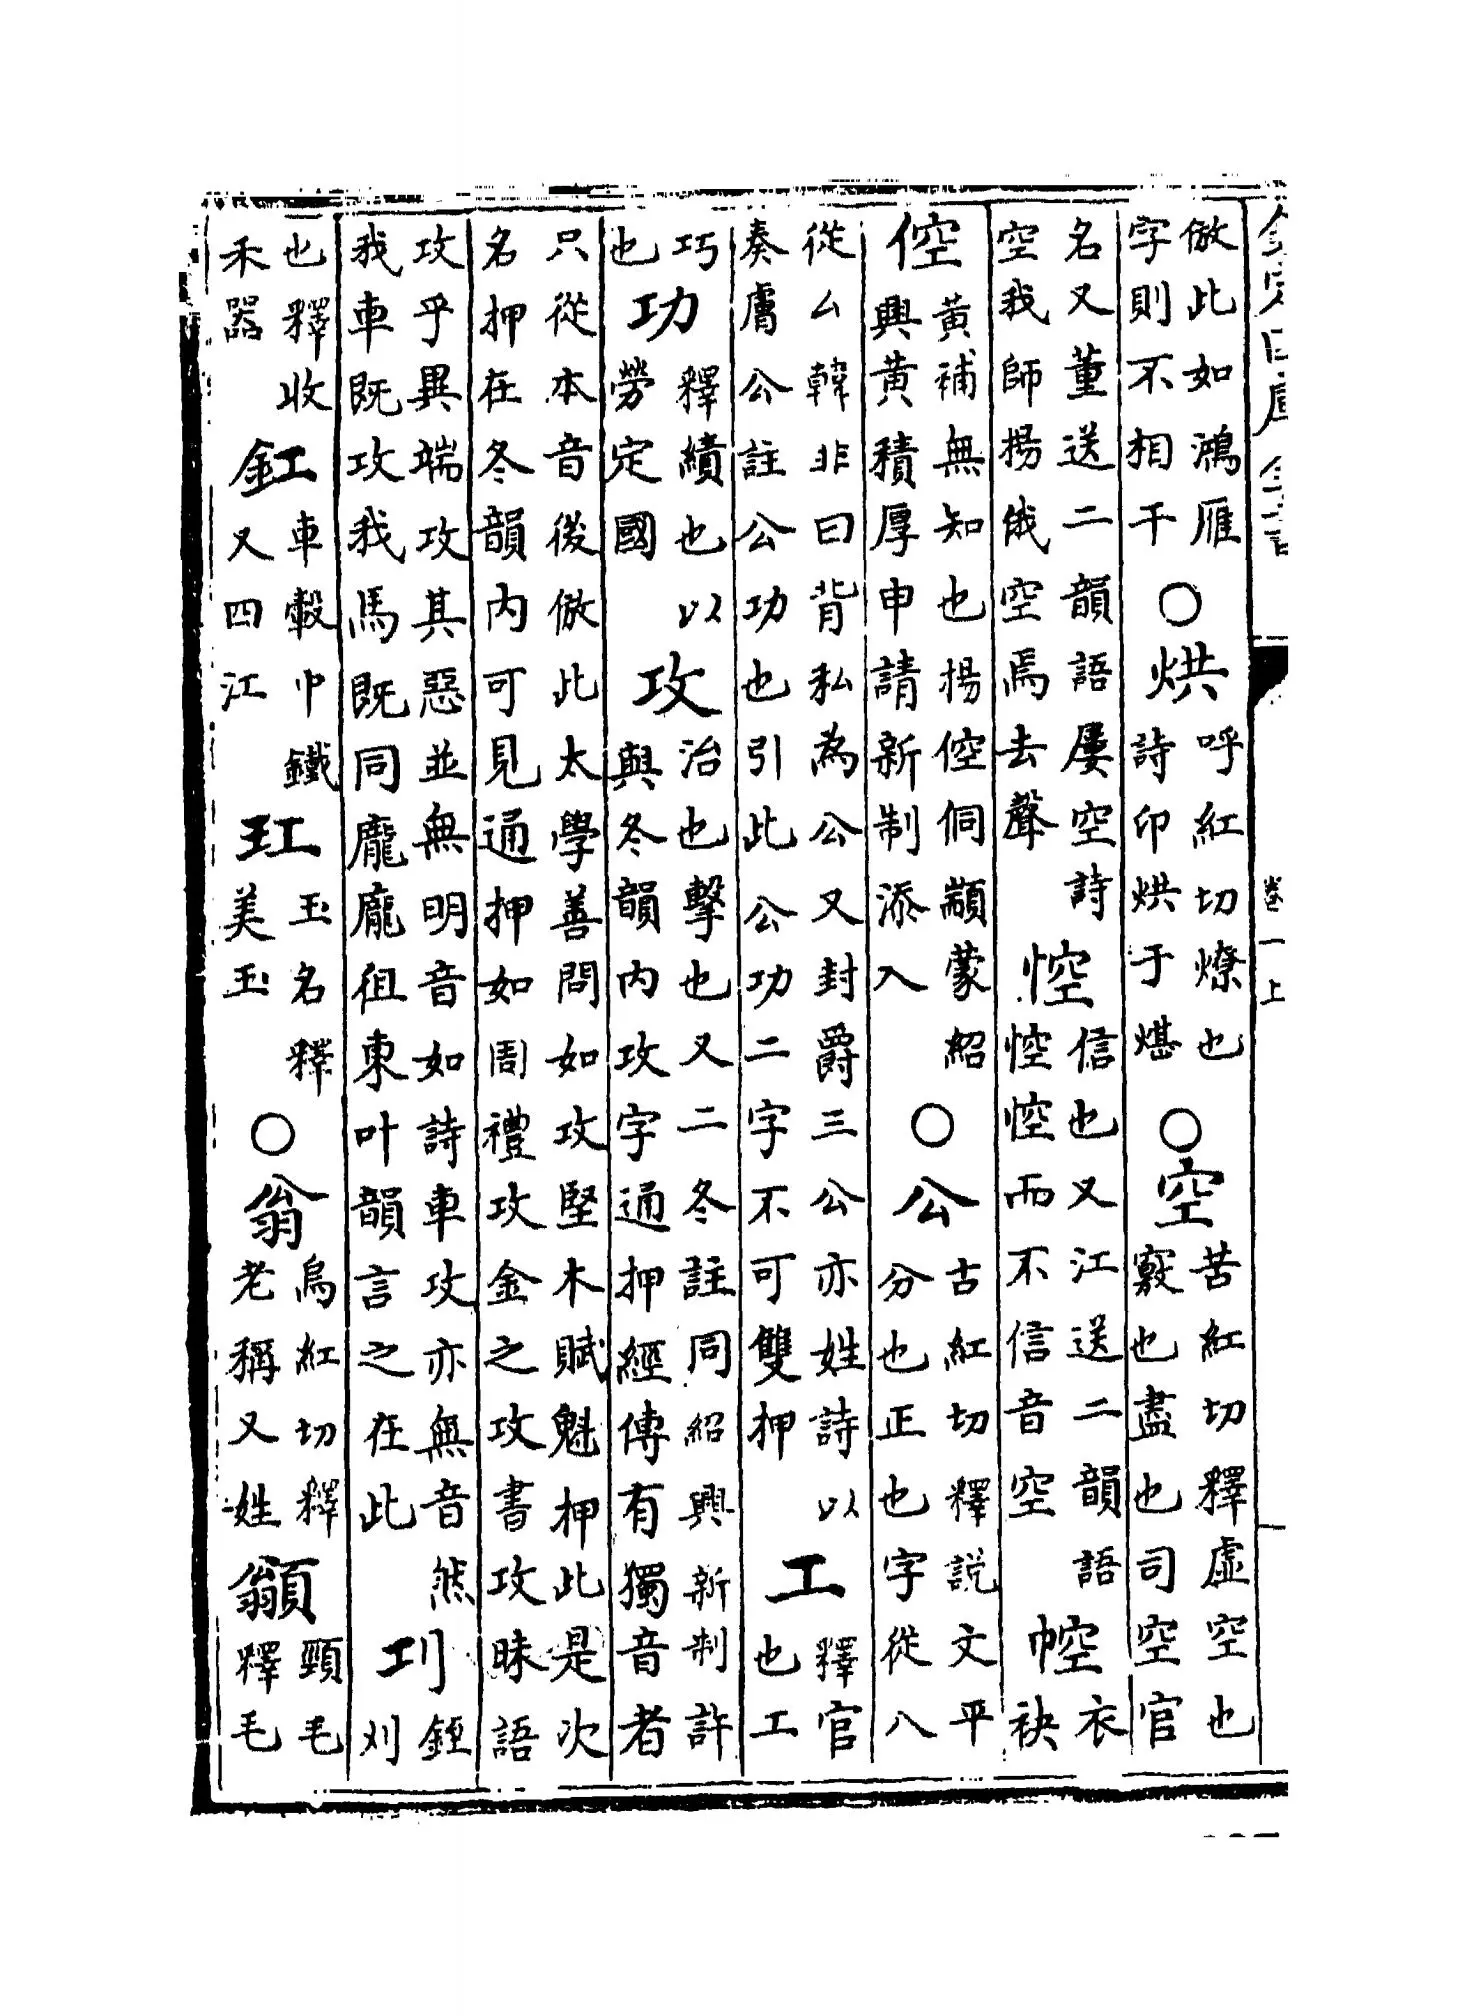 欽定四庫全書
卷一上
倣此如鴻雁字則不相干○烘呼紅切燎也詩卬烘于煁○空苦紅切釋虛空也竅也盡也司空官
名又董送二韻語屢空詩空我師揚俄空焉去聲悾信也又江送二韻語悾悾而不信音空𢃐衣袂
倥黃補無知也揚倥侗顓蒙紹興黃積厚申請新制添入○公古紅切釋説文平分也正也字從八
從厶韓非曰背私為公又封爵三公亦姓詩以奏膚公註公功也引此公功二字不可雙押工釋官也工
巧也功釋績也以勞定國攻治也擊也又二冬註同紹興新制許與冬韻内攻字通押經傳有獨音者
只從本音後倣此太學善問如攻堅木賦魁押此是次名押在冬韻内可見通押如周禮攻金之攻書攻昧語
攻乎異端攻其惡並無明音如詩車攻亦無音然我車既攻我馬既同龐龐徂東叶韻言之在此㓚鉦刈
也釋收禾器釭車轂巾鐵又四江玒玉名釋美玉○翁烏紅切釋老稱又姓𩔚頸毛釋毛